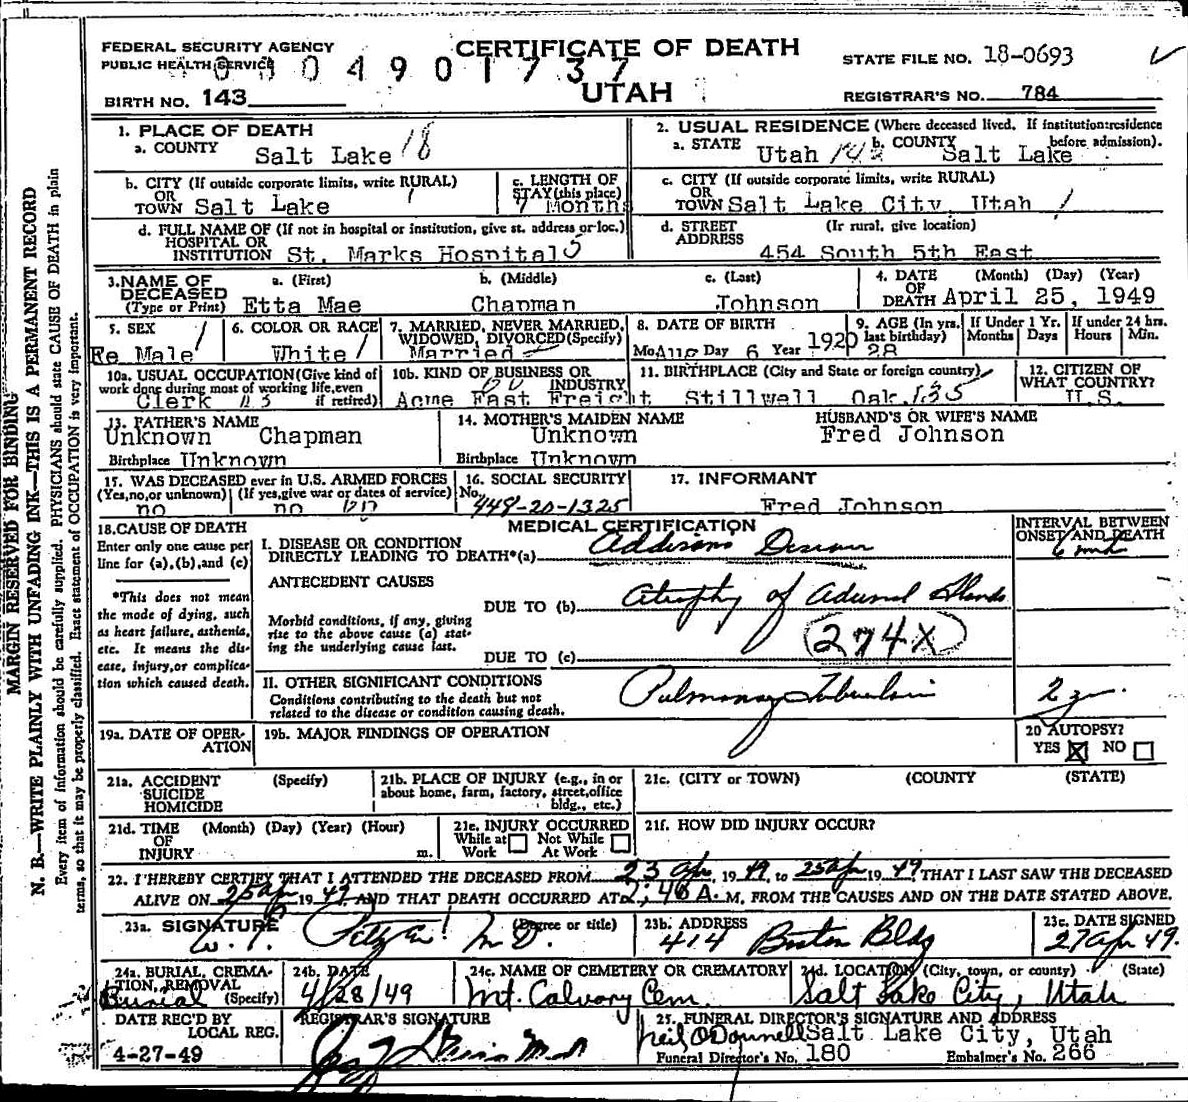 FEDERAL SECURITY AGENCY
PUBLIC HEALTH SERVICE
CERTIFICATE OF DEATH
UTAH
0 4 9 0 1 7 3 7
STATE FILE NO. 18-0693
BIRTH NO. 143
REGISTRAR'S NO. 784
1. PLACE OF DEATH
a. COUNTY Salt Lake 18
2. USUAL RESIDENCE (Where deceased lived. If institution:residence before admission).
a. STATE Utah b. COUNTY Salt Lake
b. CITY (If outside corporate limits, write RURAL)
OR
TOWN Salt Lake
c. LENGTH OF STAY(this place)
7 Months
c. CITY (If outside corporate limits, write RURAL)
OR
TOWN Salt Lake City, Utah
d. FULL NAME OF (If not in hospital or institution, give st. address or loc.)
HOSPITAL OR
INSTITUTION St. Marks Hospital 5
d. STREET ADDRESS (If rural, give location)
454 South 5th East
3. NAME OF DECEASED (Type or Print)
a. (First) b. (Middle) c. (Last)
Etta Mae Chapman Johnson
4. DATE OF DEATH (Month) (Day) (Year)
April 25, 1949
5. SEX
Fe Male
6. COLOR OR RACE
White
7. MARRIED, NEVER MARRIED, WIDOWED, DIVORCED(Specify)
Married
8. DATE OF BIRTH
Mo Aug Day 6 Year 1920
9. AGE (In yrs. last birthday)
28
If Under 1 Yr. Months Days
If under 24 hrs. Hours Min.
10a. USUAL OCCUPATION(Give kind of work done during most of working life,even if retired)
Clerk
10b. KIND OF BUSINESS OR INDUSTRY
Acme Fast Freight
11. BIRTHPLACE (City and State or foreign country)
Stillwell Oak. 135
12. CITIZEN OF WHAT COUNTRY?
U.S.
13. FATHER'S NAME
Unknown Chapman
Birthplace Unknown
14. MOTHER'S MAIDEN NAME
Unknown
Birthplace Unknown
HUSBAND'S OR WIFE'S NAME
Fred Johnson
15. WAS DECEASED ever in U.S. ARMED FORCES
(Yes,no,or unknown) (If yes,give war or dates of service)
no no
16. SOCIAL SECURITY No.
448-20-1325
17. INFORMANT
Fred Johnson
18. CAUSE OF DEATH
Enter only one cause per line for (a),(b),and (c)
*This does not mean the mode of dying, such as heart failure, asthenia, etc. It means the disease, injury,or complication which caused death.
MEDICAL CERTIFICATION
INTERVAL BETWEEN ONSET AND DEATH
I. DISEASE OR CONDITION
DIRECTLY LEADING TO DEATH*(a) Addisons Disease 6 mths
ANTECEDENT CAUSES
DUE TO (b) Atrophy of Adrenal Glands
Morbid conditions, if any, giving rise to the above cause (a) stating the underlying cause last.
274X
DUE TO (c)
II. OTHER SIGNIFICANT CONDITIONS
Conditions contributing to the death but not related to the disease or condition causing death.
Pulmonary Tuberculosis 2 yr.
19a. DATE OF OPERATION
19b. MAJOR FINDINGS OF OPERATION
20 AUTOPSY?
YES NO
21a. ACCIDENT SUICIDE HOMICIDE (Specify)
21b. PLACE OF INJURY (e.g., in or about home, farm, factory, street,office bldg., etc.)
21c. (CITY or TOWN) (COUNTY) (STATE)
21d. TIME OF INJURY (Month) (Day) (Year) (Hour) m.
21e. INJURY OCCURRED
While at Work Not While At Work
21f. HOW DID INJURY OCCUR?
22. I HEREBY CERTIFY THAT I ATTENDED THE DECEASED FROM 23 Apr, 1949 to 25 Apr 1949 THAT I LAST SAW THE DECEASED
ALIVE ON 25 Ap 1949, AND THAT DEATH OCCURRED AT 2:46 A. M. FROM THE CAUSES AND ON THE DATE STATED ABOVE.
23a. SIGNATURE (Degree or title)
M D.
23b. ADDRESS
414 Boston Bldg
23c. DATE SIGNED
27 Apr 49.
24a. BURIAL, CREMATION, REMOVAL (Specify)
Burial
24b. DATE
4/28/49
24c. NAME OF CEMETERY OR CREMATORY
Mt. Calvary Cem.
24d. LOCATION (City, town, or county) (State)
Salt Lake City, Utah
DATE REC'D BY LOCAL REG.
4-27-49
REGISTRAR'S SIGNATURE
25. FUNERAL DIRECTOR'S SIGNATURE AND ADDRESS
Neil O'Donnell Salt Lake City, Utah
Funeral Director's No. 180 Embalmer's No. 266
MARGIN RESERVED FOR BINDING
N. B.—WRITE PLAINLY WITH UNFADING INK—THIS IS A PERMANENT RECORD
Every item of information should be carefully supplied. PHYSICIANS should state CAUSE OF DEATH in plain
terms, so that it may be properly classified. Exact statement of OCCUPATION is very important.